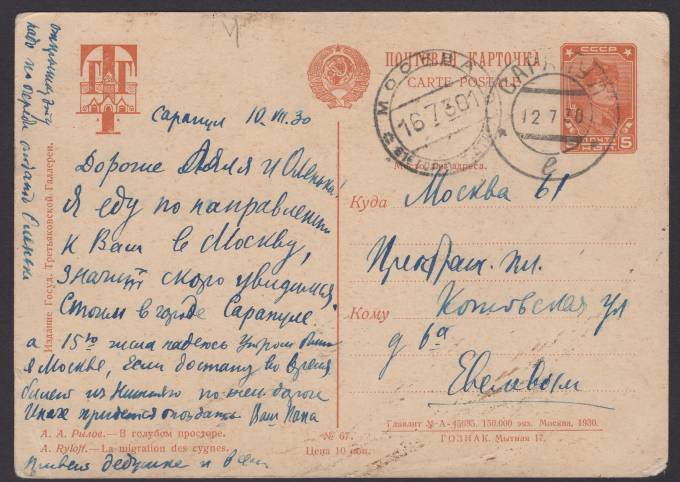 ПОЧТОВАЯ КАРТОЧКА
CARTE POSTALE
СССР
ПОЧТА
5
МОСКВА
16 7 30
САРАПУЛ
12 7 30
адреса.
Сарапул 10.VII.30
Дорогие Ляля и Оленька!
Я еду по направлению
к Вам в Москву,
Значит скоро увидимся.
Стоим в городе Сарапуле
а 15го числа надеюсь утром
в Москве, Если достану во время
билет из Нижнего по жел дороге
Иначе придется опоздать Ваш Папа
Привет дедушке и всем
открытку эту
надо отдать Оленьке
Куда Москва 61
Преображ. пл.
Кому
ул
д 6а
Издание Госуд. Третьяковской Галлереи.
А. А. Рылов.—В голубом просторе.
A. Ryloff.—La migration des cygnes.
№ 67.
Цена 10 коп.
Главлит № А-45695. 150.000 экз. Москва, 1930.
ГОЗНАК. Мытная 17.